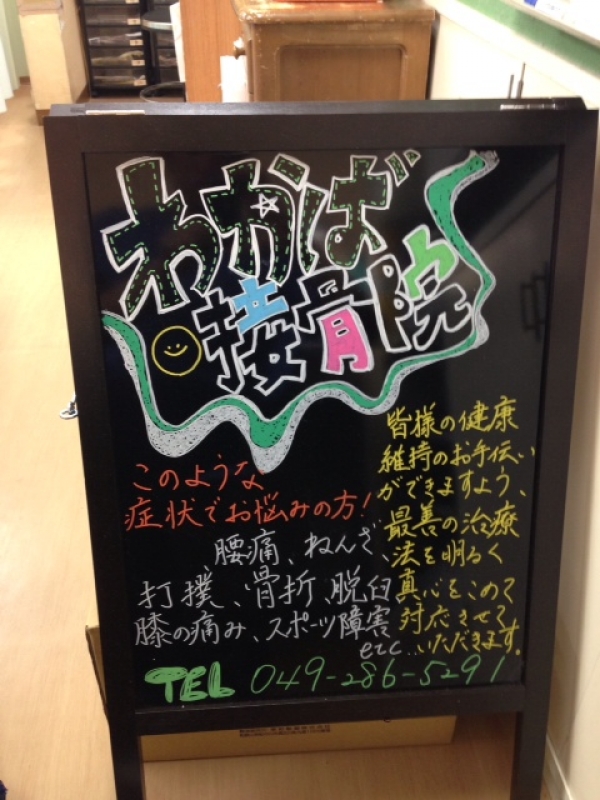 わかば
接骨院
このような
症状でお悩みの方！
腰痛、ねんざ、
打撲、骨折、脱臼
膝の痛み、スポーツ障害
etc...
皆様の健康
維持のお手伝い
ができますよう、
最善の治療
法を明るく
真心をこめて
対応させて
いただきます。
TEL 049-286-5291